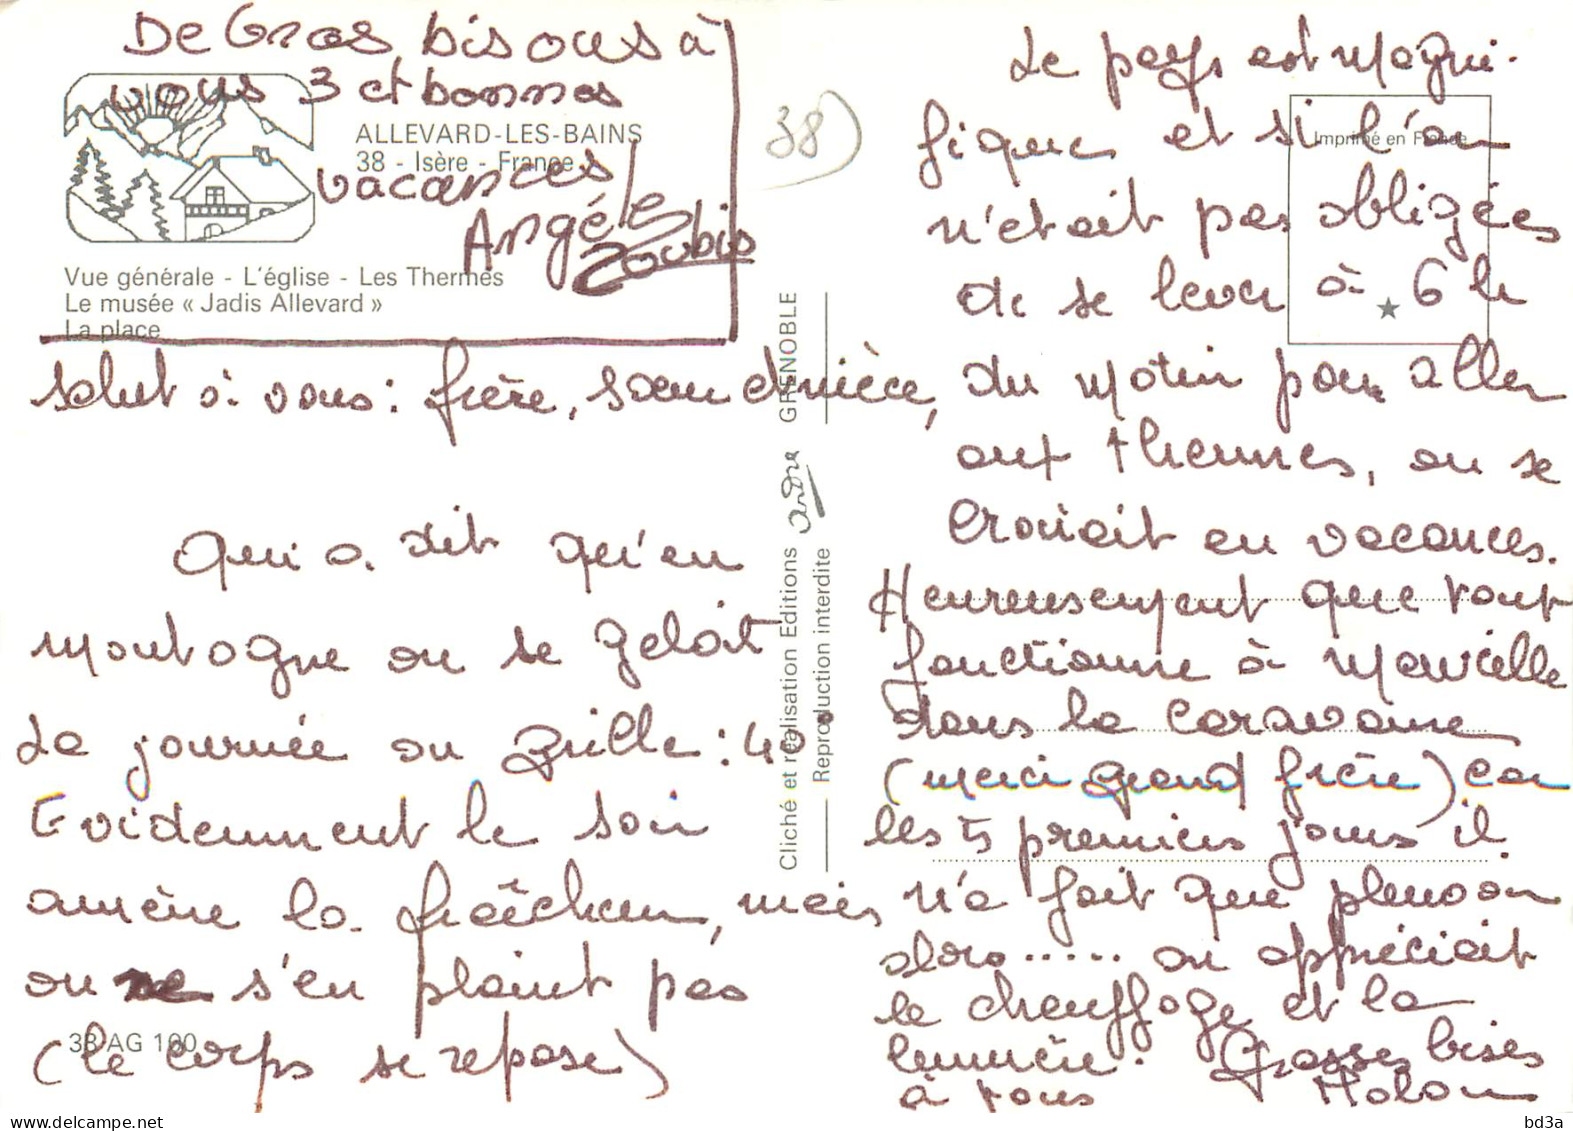 De Gros bisous à
vous 3 et bonnes
vacances
Angèle
Zoubis
ALLEVARD-LES-BAINS
38 - Isère - France
Vue générale - L'église - Les Thermes
Le musée « Jadis Allevard »
La place
salut à vous : frère, sœur et nièce,
Qui a dit qu'en
montagne on se gelait
La journée on grille : 40°
Evidemment le soir
amène la fraîcheur, mais
on ne s'en plaint pas
(le corps se repose)
38 AG 100
GRENOBLE
Cliché et réalisation Editions André
Reproduction interdite
38)
Imprimé en France
Le pays est magni-
fique et si l'on
n'était pas obligées
de se lever à 6 h
du matin pour aller
aux thermes, on se
croirait en vacances.
Heureusement que tout
fonctionne à merveille
dans la caravane
(merci grand frère) car
les 5 premiers jours il
n'a fait que pleuvoir
alors ..... on appréciait
le chauffage et la
lumière. Grosses bises
à tous